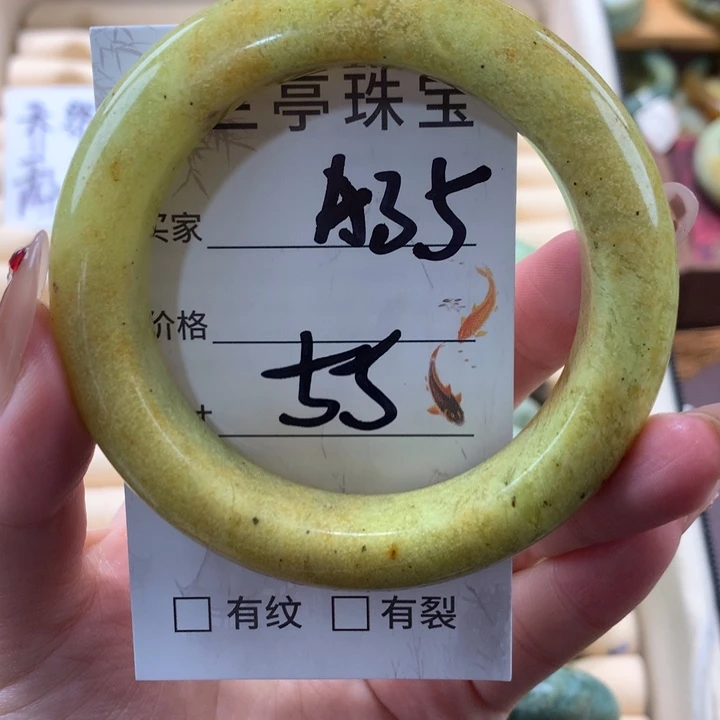 亭珠宝
买家 A35
价格
55
有纹 有裂